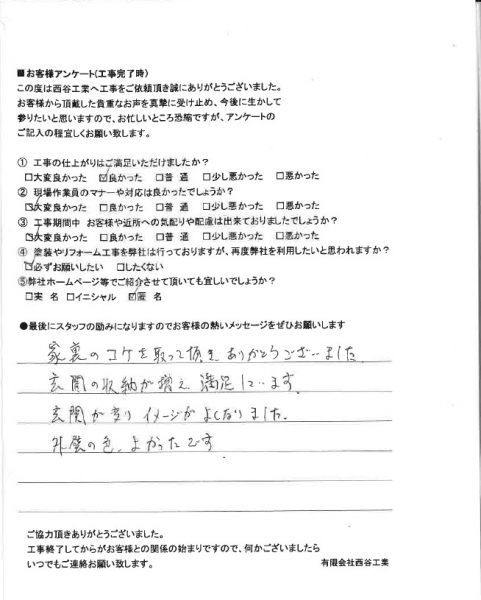 ■お客様アンケート(工事完了時)
この度は西谷工業へ工事をご依頼頂き誠にありがとうございました。
お客様から頂戴した貴重なお声を真摯に受け止め、今後に生かして
参りたいと思いますので、お忙しいところ恐縮ですが、アンケートの
ご記入の程宜しくお願い致します。
① 工事の仕上がりはご満足いただけましたか？
□大変良かった ☑良かった □普 通 □少し悪かった □悪かった
② 現場作業員のマナーや対応は良かったでしょうか？
☑大変良かった □良かった □普 通 □少し悪かった □悪かった
③ 工事期間中 お客様や近所への気配りや配慮は出来ておりましたでしょうか？
☑大変良かった □良かった □普 通 □少し悪かった □悪かった
④ 塗装やリフォーム工事を弊社は行っておりますが、再度弊社を利用したいと思われますか？
☑必ずお願いしたい □したくない
⑤弊社ホームページ等でご紹介させて頂いても宜しいでしょうか？
□実 名 □イニシャル ☑匿 名
●最後にスタッフの励みになりますのでお客様の熱いメッセージをぜひお願いします
家裏のコケを取って頂きありがとうございました。
玄関の収納が増え 満足しています。
玄関が変り イメージがよくなりました。
外壁の色、よかったです
ご協力頂きありがとうございました。
工事終了してからがお客様との関係の始まりですので、何かございましたら
いつでもご連絡お願い致します。
有限会社西谷工業